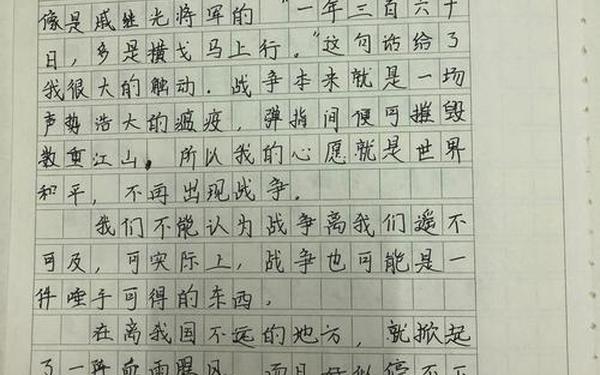 像是戚继光将军的“一年三百六十
日，多是横戈马上行。”这句话给了
我很大的触动。战争本来就是一场
声势浩大的瘟疫，弹指间便可摧毁
数重江山。所以我的心愿就是世界
和平，不再出现战争。
我们不能认为战争离我们遥不
可及，可实际上，战争也可能是一
件唾手可得的东西。
在离我国不远的地方，就掀起
了一阵血雨腥风，而且好似停不下